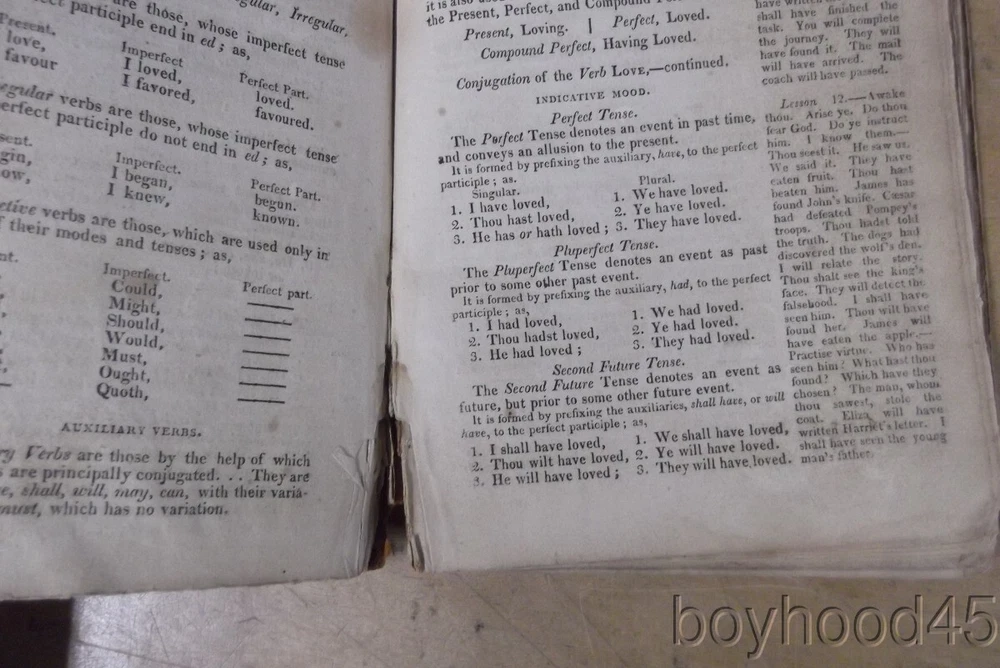 gular, Irregular,
are those, whose imperfect tense
participle end in ed; as,
Present. Imperfect Perfect Part.
love, I loved, loved.
favour I favored, favoured.
egular verbs are those, whose imperfect tense
erfect participle do not end in ed; as,
sent. Imperfect. Perfect Part.
gin, I began, begun.
ow, I knew, known.
ctive verbs are those, which are used only in
f their modes and tenses; as,
nt. Imperfect. Perfect part.
Could,
Might,
Should,
Would,
Must,
Ought,
Quoth,
AUXILIARY VERBS.
ry Verbs are those by the help of which
s are principally conjugated. . . They are
e, shall, will, may, can, with their varia-
must, which has no variation.
it is also
the Present, Perfect, and Compound
Present, Loving. | Perfect, Loved.
Compound Perfect, Having Loved.
Conjugation of the Verb LOVE,—continued.
INDICATIVE MOOD.
Perfect Tense.
The Perfect Tense denotes an event in past time,
and conveys an allusion to the present.
It is formed by prefixing the auxiliary, have, to the perfect
participle; as.
Singular. Plural.
1. I have loved, 1. We have loved.
2. Thou hast loved, 2. Ye have loved.
3. He has or hath loved; 3. They have loved.
Pluperfect Tense.
The Pluperfect Tense denotes an event as past
prior to some other past event.
It is formed by prefixing the auxiliary, had, to the perfect
participle; as,
1. I had loved, 1. We had loved.
2. Thou hadst loved, 2. Ye had loved.
3. He had loved; 3. They had loved.
Second Future Tense.
The Second Future Tense denotes an event as
future, but prior to some other future event.
It is formed by prefixing the auxiliaries, shall have, or will
have, to the perfect participle; as,
1. I shall have loved, 1. We shall have loved.
2. Thou wilt have loved, 2. Ye will have loved.
3. He will have loved; 3. They will have loved.
have written
shall have finished the
task. You will complete
the journey. They will
have found it. The mail
will have arrived. The
coach will have passed.
Lesson 12.—Awake
thou. Arise ye. Do thou
fear God. Do ye instruct
him. I know them.—
Thou seest it. He saw us.
We said it. They have
eaten fruit. Thou hast
beaten him. James has
found John's knife. Cæsar
had defeated Pompey's
troops. Thou hadst told
the truth. The dogs had
discovered the wolf's den.
I will relate the story.
Thou shalt see the king's
face. They will detect the
falsehood. I shall have
seen him. Thou wilt have
found her. James will
have eaten the apple.—
Practise virtue. Who has
seen him? What hast thou
found? Which have they
chosen? The man, whom
thou sawest, stole the
coat. Eliza will have
written Harriet's letter. I
shall have seen the young
man's father.
boyhood45